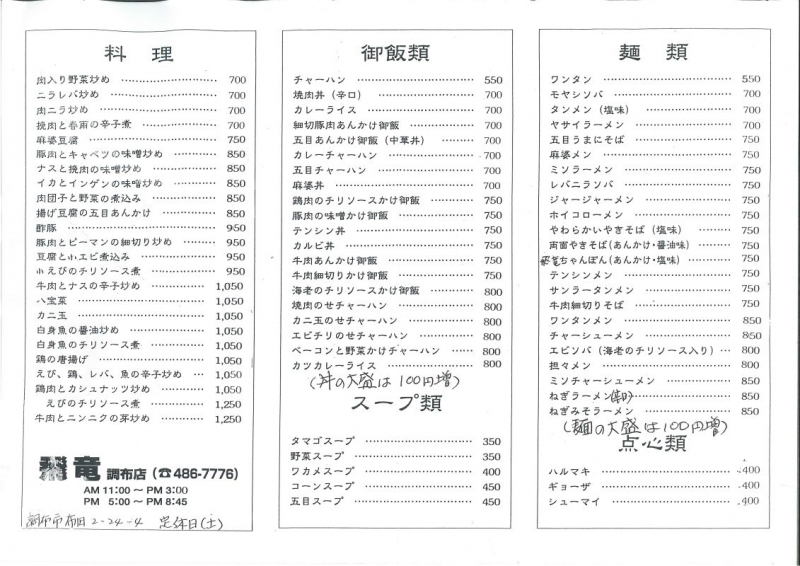 料理
肉入り野菜炒め 700
ニラレバ炒め 700
肉ニラ炒め 700
挽肉と春雨の辛子煮 700
麻婆豆腐 750
豚肉とキャベツの味噌炒め 850
ナスと挽肉の味噌炒め 850
イカとインゲンの味噌炒め 850
肉団子と野菜の煮込み 850
揚げ豆腐の五目あんかけ 850
酢豚 950
豚肉とピーマンの細切り炒め 950
豆腐と小エビ煮込み 950
小えびのチリソース煮 950
牛肉とナスの辛子炒め 1,050
八宝菜 1,050
カニ玉 1,050
白身魚の醤油炒め 1,050
白身魚のチリソース煮 1,050
鶏の唐揚げ 1,050
えび、鶏、レバ、魚の辛子炒め 1,050
鶏肉とカシュナッツ炒め 1,050
えびのチリソース煮 1,250
牛肉とニンニクの芽炒め 1,250
飛竜 調布店 (☎486-7776)
AM 11:00 〜 PM 3:00
PM 5:00 〜 PM 8:45
調布市布田 2-24-4 定休日(土)
御飯類
チャーハン 550
焼肉丼（辛口） 700
カレーライス 700
細切豚肉あんかけ御飯 700
五目あんかけ御飯（中華丼） 700
カレーチャーハン 700
五目チャーハン 700
麻婆丼 700
鶏肉のチリソースかけ御飯 750
豚肉の味噌かけ御飯 750
テンシン丼 750
カルビ丼 750
牛肉あんかけ御飯 750
牛肉細切りかけ御飯 750
海老のチリソースかけ御飯 800
焼肉のせチャーハン 800
カニ玉のせチャーハン 800
エビチリのせチャーハン 800
ベーコンと野菜かけチャーハン 800
カツカレーライス 800
(丼の大盛は100円増)
スープ類
タマゴスープ 350
野菜スープ 350
ワカメスープ 400
コーンスープ 450
五目スープ 450
麺類
ワンタン 550
モヤシソバ 700
タンメン（塩味） 700
ヤサイラーメン 700
五目うまにそば 750
麻婆メン 750
ミソラーメン 750
レバニランバ 750
ジャージャーメン 750
ホイコローメン 750
やわらかいやきそば（塩味） 750
両面やきそば(あんかけ・醤油味) 750
ちゃんぽん(あんかけ・塩味) 750
テンシンメン 750
サンラータンメン 750
牛肉細切りそば 750
ワンタンメン 850
チャーシューメン 850
エビソバ（海老のチリソース入り） 800
担々メン 800
ミソチャーシューメン 850
ねぎラーメン 850
ねぎみそラーメン 850
(麺の大盛は100円増)
点心類
ハルマキ 400
ギョーザ 400
シューマイ 400